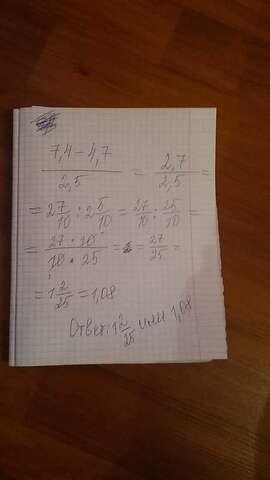 7,4 - 4,7 / 2,5 = 2,7 / 2,5 =
= 2 7/10 : 2 5/10 = 27/10 : 25/10 =
= 27 · 10 / 10 · 25 = 27/25 =
= 1 2/25 = 1,08
Ответ: 1 2/25 или 1,08